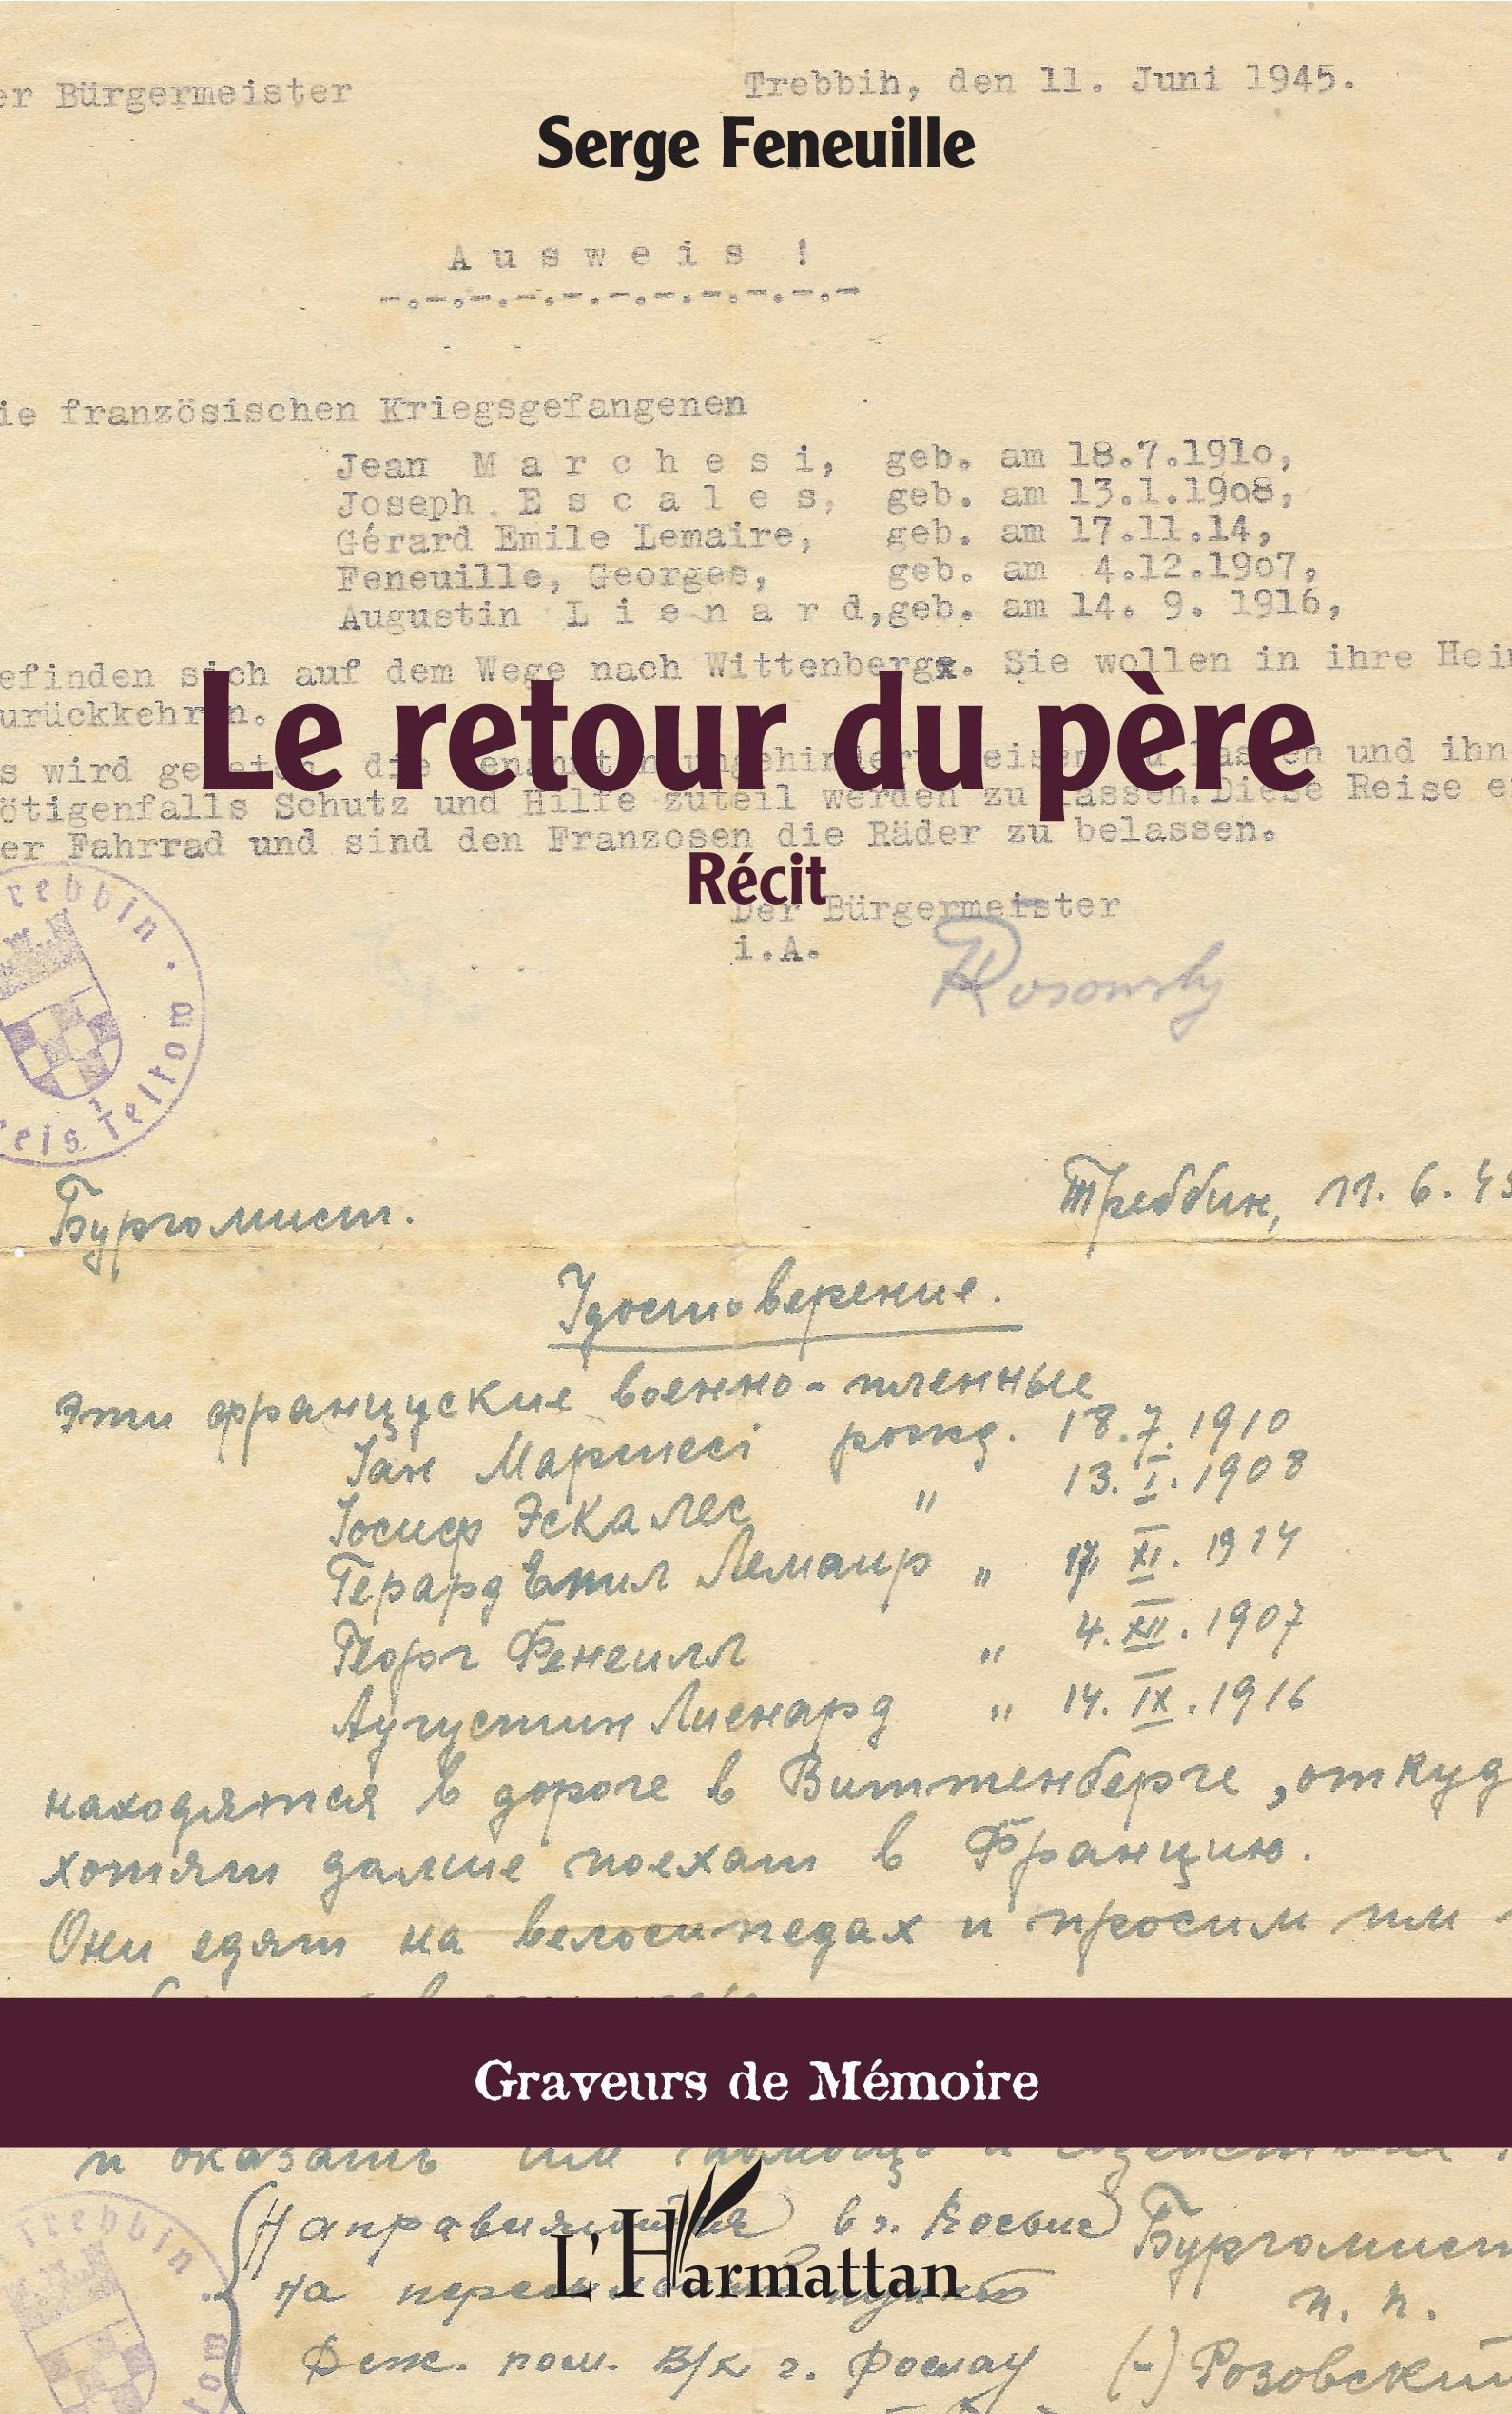 er Bürgermeister
Trebbin, den 11. Juni 1945.
Serge Feneuille
A u s w e i s !
-.-.-.-.-.-.-.-.-.-.-
ie französischen Kriegsgefangenen
Jean M a r c h e s i, geb. am 18.7.1910,
Joseph E s c a l e s, geb. am 13.1.1908,
Gérard Emile Lemaire, geb. am 17.11.14,
Feneuille, Georges, geb. am 4.12.1907,
Augustin L i e n a r d,geb. am 14. 9. 1916,
efinden sich auf dem Wege nach Wittenberg. Sie wollen in ihre Hei
urückkehren.
Le retour du père
s wird gebeten, die Genannten ungehindert reisen zu lassen und ihn
ötigenfalls Schutz und Hilfe zuteil werden zu lassen.Diese Reise e
er Fahrrad und sind den Franzosen die Räder zu belassen.
Récit
Der Bürgermeister
i.A.
Rosowsky
rebbin
reis Teltow
Бургомист.
Треббин, 11. 6. 45
Удостоверение.
Эти француские военно-пленные
Іан Маршесі рожд. 18.7.1910
Іосиф Эскалес " 13. I. 1908
Герард Емил Лемаир " 17. XI. 1914
Георг Фенеилл " 4. XII. 1907
Аугустин Лиенард " 14. IX. 1916
находятся в дороге в Виттенберге, откуд
хотят далше поехат в Францию.
Они едят на велосипедах и просим им
Graveurs de Mémoire
и оказать им помощь и
Направляются в г.
на пункт
L'Harmattan
Бургомист
п. п.
(-) Розовский
trebbin